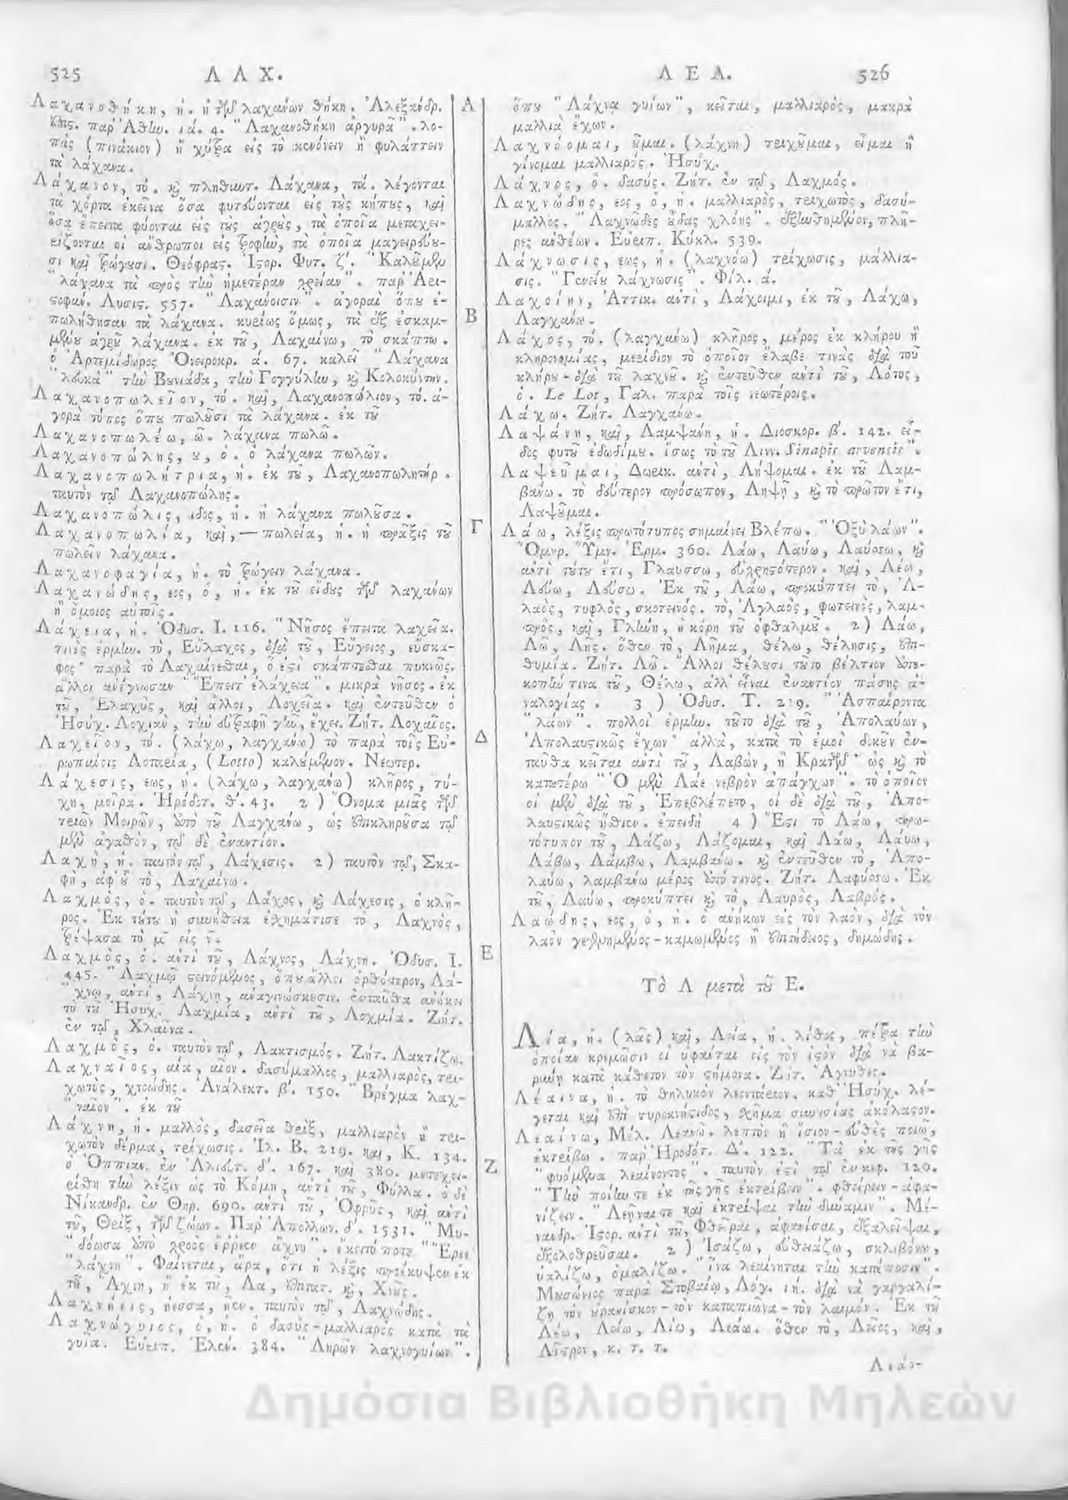 525 ΛΑΧ.
Λαχανοθήκη, ἡ. ἡ τῶν λαχάνων θήκη. Ἀλεξανδρ.
παρ' Ἀθην. ιά. 4. "Λαχανοθήκη ἀργυρᾶ". λο-
πὰς (πινάκιον) ἢ χύτρα εἰς τὸ κενόνειν ἢ φυλάττειν
τὰ λάχανα.
Λάχανον, τό. καὶ πληθυντ. Λάχανα, τά. λέγονται
τὰ χόρτα ἐκεῖνα ὅσα φυτεύονται εἰς τοὺς κήπους, καὶ
ὅσα ἔπειτα φύονται εἰς τοὺς ἀγροὺς, τὰ ὁποῖα μεταχει-
ρίζονται οἱ ἄνθρωποι εἰς τροφὴν, τὰ ὁποῖα μαγειρεύου-
σι καὶ τρώγουσι. Θεόφρας. Ἱςορ. Φυτ. ζ'. "Καλοῦμεν
"λάχανα τὰ πρὸς τὴν ἡμετέραν χρείαν". παρ' Ἀρι-
ςοφάν. Λυσις. 557. "Λαχάνοισιν". ἀγοραὶ ὅπου ἐ-
πωλήθησαν τὰ λάχανα. κυρίως ὅμως, τὰ ἐξ ἐσκαμ-
μένου ἀγροῦ λάχανα. ἐκ τοῦ, Λαχαίνω, τὸ σκάπτω.
ὁ Ἀρτεμίδωρος Ὀνειροκρ. ά. 67. καλεῖ "Λάχανα
"λευκὰ" τὴν Βουνιάδα, τὴν Γογγύλην, καὶ Κολοκύντην.
Λαχανοπωλεῖον, τό. καὶ, Λαχανοπώλιον, τό. ἀ-
γορὰ τόπος ὅπου πωλοῦσι τὰ λάχανα. ἐκ τοῦ
Λαχανοπωλέω, ῶ. λάχανα πωλῶ.
Λαχανοπώλης, ου, ὁ. ὁ λάχανα πωλῶν.
Λαχανοπωλήτρια, ἡ. ἐκ τοῦ, Λαχανοπωλητήρ.
ταυτὸν τῷ Λαχανοπώλης.
Λαχανοπώλις, ιδος, ἡ. ἡ λάχανα πωλοῦσα.
Λαχανοπωλία, καὶ, — πωλεία, ἡ. ἡ πρᾶξις τοῦ
πωλεῖν λάχανα.
Λαχανοφαγία, ἡ. τὸ τρώγειν λάχανα.
Λαχανώδης, εος, ὁ, ἡ. ἐκ τοῦ εἴδους τῶν λαχάνων
ἢ ὅμοιος αὐτοῖς.
Λάχεια, ἡ. Ὀδυσ. Ι. 116. "Νῆσος ἔπειτα λαχεῖα.
τινὲς ἑρμην. τὸ, Εὔλαχος, διὰ τοῦ, Εὔγειος, εὔσκα-
φος· παρὰ τὸ Λαχαίνεσθαι, ὅ ἐςι σκάπτεσθαι πυκνῶς.
ἄλλοι ἀνέγνωσαν "Ἔπειτ' ἐλάχεια". μικρὰ νῆσος. ἐκ
τοῦ, Ἐλαχὺς, καὶ ἄλλοι, Λοχεία. καὶ ἐντεῦθεν ὁ
Ἡσύχ. Λοχιαν, τὴν εὐτραφῆ γῆν, ἔχει. Ζήτ. Λοχαῖος.
Λαχεῖον, τό. (λάχω, λαγχάνω) τὸ παρὰ τοῖς Εὐ-
ρωπαίοις Λοταεία, (Lotto) καλούμενον. Νεωτερ.
Λάχεσις, εως, ἡ. (λάχω, λαγχάνω) κλῆρος, τύ-
χη, μοῖρα. Ἡρόδοτ. θ'. 43. 2) Ὄνομα μιᾶς τῶν
τριῶν Μοιρῶν, ἀπὸ τοῦ Λαγχάνω, ὡς ἐπικληροῦσα τῷ
μὲν ἀγαθὸν, τῷ δὲ ἐναντίον.
Λαχή, ἡ. ταυτὸν τῷ, Λάχεσις. 2) ταυτὸν τῷ, Σκα-
φὴ, ἀφ' οὗ τὸ, Λαχαίνω.
Λαχμός, ὁ. ταυτὸν τῷ, Λάχος, καὶ Λάχεσις, ὁ κλῆ-
ρος. Ἐκ τούτου ἡ συνήθεια ἐσχημάτισε τὸ, Λαχνὸς,
τρέψασα τὸ μ εἰς ν.
Λαχμός, ὁ. ἀντὶ τοῦ, Λάχνος, Λάχνη. Ὀδυσ. Ι.
445. "Λαχμῷ ςεινόμενος, ὅπου ἄλλοι ὀρθότερον, Λά-
"χνῳ, ἀντὶ, Λάχνη, ἀναγινώσκουσιν. ἐνταῦθα ἀνήκει
τὸ τοῦ Ἡσυχ. Λαχμία, ἀντὶ τοῦ, Λοχμία. Ζήτ.
ἐν τῷ, Χλαῖνα.
Λαχμὸς, ὁ. ταυτὸν τῷ, Λακτισμός. Ζήτ. Λακτίζω.
Λαχναῖος, αία, αῖον. δασύμαλλος, μαλλιαρὸς, τρι-
χωτὸς, χνοώδης. Ἀνάλεκτ. β'. 150. "Βρέγμα λαχ-
"ναῖον". ἐκ τοῦ
Λάχνη, ἡ. μαλλὸς, δασεῖα θρὶξ, μαλλιαρὸν ἢ τρι-
χωτὸν δέρμα, τρίχωσις. Ἰλ. Β. 219. καὶ, Κ. 134.
ὁ Ὀππίαν. ἐν Ἁλιευτ. δ'. 167. καὶ 380. μετεχει-
ρίσθη τὴν λέξιν ὡς τὸ Κόμη, ἀντὶ τοῦ, Φύλλα. ὁ δὲ
Νίκανδρ. ἐν Θηρ. 690. ἀντὶ τοῦ, Ὀφρῦς, καὶ ἀντὶ
τοῦ, Θρὶξ, τῶν ζώων. Παρ' Ἀπολλων. δ'. 1531. "Μυ-
"δόωσα ἀπὸ χροὸς ἔρρεεν ἄχνη".
"λάχνη". Φαίνεται, ἄρα, ὅτι ἡ λέξις προέκυψεν ἐκ
τοῦ, Ἄχνη, ἢ ἐκ τοῦ, Λα, ἐπιτατ. καὶ, Χνοῦς.
Λαχνήεις, ήεσσα, ῆεν. ταυτὸν τῷ, Λαχνώδης.
Λαχνόγυιος, ὁ, ἡ. ὁ δασὺς - μαλλιαρὸς κατὰ τὰ
γυῖα. Εὐριπ. Ἑλέν. 384. "Θηρῶν λαχνογυίων".
Α
Β
Γ
Δ
Ε
Ζ
ΛΕΑ. 526
ὅπου "Λάχνα γυίων", κεῖται, μαλλιαρὸς, μακρὰ
μαλλιὰ ἔχων.
Λαχνόομαι, οῦμαι. (λάχνη) τριχοῦμαι, εἶμαι ἢ
γίνομαι μαλλιαρός. Ἡσύχ.
Λάχνος, ὁ. δασύς. Ζήτ. ἐν τῷ, Λαχμός.
Λαχνώδης, εος, ὁ, ἡ. μαλλιαρὸς, τριχωτὸς, δασύ-
μαλλος. "Λαχνῶδες οὖδας χλόης". ἐξηνθημένον, πλῆ-
ρες ἀνθέων. Εὐριπ. Κύκλ. 539.
Λάχνωσις, εως, ἡ. (λαχνόω) τρίχωσις, μαλλία-
σις. "Γενείου λάχνωσις". Φίλ. ά.
Λαχοίην, Ἀττικ. ἀντὶ, Λάχοιμι, ἐκ τοῦ, Λάχω,
Λαγχάνω.
Λάχος, τό. (λαγχάνω) κλῆρος, μέρος ἐκ κλήρου ἢ
κληρονομίας, μερίδιον τὸ ὁποῖον ἔλαβέ τινας διὰ τοῦ
κλήρου - διὰ τοῦ λαχνοῦ. καὶ ἐντεῦθεν ἀντὶ τοῦ, Λότος,
ὁ. Le Lot, Γαλ. παρὰ τοῖς νεωτέροις.
Λάχω. Ζήτ. Λαγχάνω.
Λαψάνη, καὶ, Λαμψάνη, ἡ. Διοσκορ. β'. 142. εἶ-
δος φυτοῦ ἐδωδίμου. ἴσως τὸ τοῦ Λινν. Sinapis arvensis".
Λαψεῦμαι, Δωρικ. ἀντὶ, Λήψομαι. ἐκ τοῦ Λαμ-
βάνω. τὸ δεύτερον πρόσωπον, Λαψῇ, καὶ τὸ πρῶτον ἔτι,
Λαψοῦμαι.
Λάω, λέξις πρωτότυπος σημαίνει Βλέπω. "Ὀξὺ λάων".
Ὁμηρ. Ὕμν. Ἑρμ. 360. Λάω, Λαύω, Λαύσω, καὶ
ἀντὶ τούτου ἔτι, Γλαύσσω, εὐχρηςότερον. καὶ, Λέω,
Λεύω, Λεύσω. Ἐκ τοῦ, Λάω, προκύπτει τὸ, Ἀ-
λαὸς, τυφλὸς, σκοτεινός. τὸ, Ἀγλαὸς, φωτεινὸς, λαμ-
πρὸς, καὶ, Γλήνη, ἡ κόρη τοῦ ὀφθαλμοῦ. 2) Λάω,
Λῶ, Λῇς. ὅθεν τὸ, Λῆμα, θέλω, θέλησις, ἐπι-
θυμία. Ζήτ. Λῶ. Ἄλλοι θέλουσι τοῦτο βέλτιον ἀπο-
κοπήν τινα τοῦ, Θέλω, ἀλλ' εἶναι ἐναντίον πάσης ἀ-
ναλογίας. 3) Ὀδυσ. Τ. 219. "Ἀσπαίροντα
"λάων". πολλοὶ ἑρμην. τοῦτο διὰ τοῦ, Ἀπολαύων,
Ἀπολαυςικῶς ἔχων· ἀλλὰ, κατὰ τὸ ἐμοὶ δοκοῦν ἐν-
ταῦθα κεῖται ἀντὶ τοῦ, Λαβὼν, ἢ Κρατῶν· ὡς καὶ τὸ
κατωτέρω "Ὁ μὲν Λάε νεβρὸν ἀπάγχων". τὸ ὁποῖον
οἱ μὲν διὰ τοῦ, Ἐπεβλέπετο, οἱ δὲ διὰ τοῦ, Ἀπο-
λαυςικῶς ἤσθιεν. ἐπειδὴ 4) Ἔςι τὸ Λάω, πρω-
τότυπον τοῦ, Λάζω, Λάζομαι, καὶ Λάω, Λαύω,
Λάβω, Λάμβω, Λαμβάνω. καὶ ἐντεῦθεν τὸ, Ἀπο-
λαύω, λαμβάνω μέρος ἀπό τινος. Ζήτ. Λαφύσσω. Ἐκ
τοῦ, Λαύω, προκύπτει καὶ τὸ, Λαυρὸς, Λαβρός.
Λαώδης, εος, ὁ, ἡ. ὁ ἀνήκων εἰς τὸν λαὸν, διὰ τὸν
λαὸν γεγενημένος - καμωμένος ἢ ἐπιτήδειος, δημώδης.
Τὸ Λ μετὰ τοῦ Ε.
Λέα, ἡ. (λᾶς) καὶ, Λεία, ἡ. λίθος, πέτρα τὴν
ὁποίαν κρεμῶσιν οἱ ὑφανταὶ εἰς τὸν ἱςὸν διὰ νὰ βα-
ρύνῃ κατὰ κάθετον τὸν ςήμονα. Ζήτ. Ἀγνύθες.
Λέαινα, ἡ. τὸ θηλυκὸν λεοντάριον. καθ' Ἡσύχ. λέ-
γεται καὶ ἐπὶ τυροκνήςιδος, σχῆμα συνουσίας ἀκόλασον.
Λεαίνω, Μέλ. Λεανῶ. λεπτὸν ἢ ἴσιον - εὐθὲς ποιῶ,
ἐκτρίβω. παρ' Ἡροδότ. Δ'. 122. "Τὰ ἐκ τῆς γῆς
"φυόμενα λεαίνοντας". ταυτόν ἐςι τῷ ἐν κεφ. 120.
"Τὴν ποίην τε ἐκ τῆς γῆς ἐκτρίβειν". φθείρειν - ἀφα-
νίζειν. "Λεῆναί τε καὶ ἐκτρῖψαι τὴν δύναμιν". Μέ-
νανδρ. Ἱςορ. ἀντὶ τοῦ, Φθεῖραι, ἀφανίσαι, ἐξαλεῖψαι,
ἐξολοθρεῦσαι. 2) Ἰσάζω, εὐθειάζω, σκλιβόνω,
ὑαλίζω, ὁμαλίζω. "ἵνα λεαίνηται τὴν κατάποσιν".
Μουσώνιος παρὰ Στοβαίῳ, Λόγ. ιή. διὰ νὰ γαργαλί-
ζῃ τὸν οὐρανίσκον - τὸν καταπιῶνα - τὸν λαιμόν. Ἐκ τοῦ
Λέω, Λείω, Λίω, Λειάω. ὅθεν τὸ, Λεῖος, καὶ,
Λίςρον, κ. τ. τ.
Λεάν-
Δημόσια Βιβλιοθήκη Μηλεών